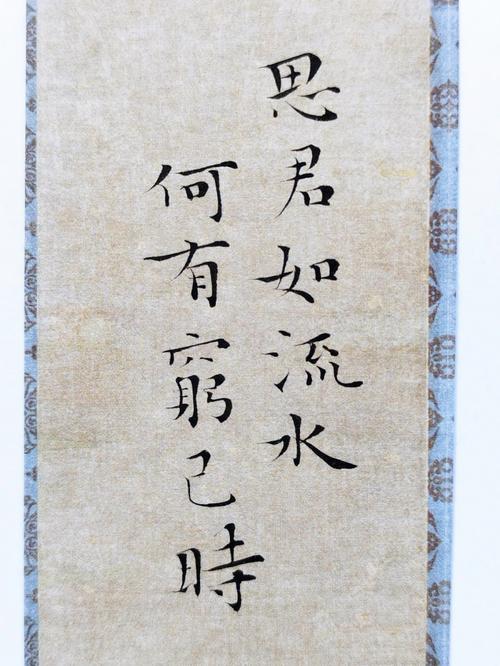 思君如流水
何有窮已時